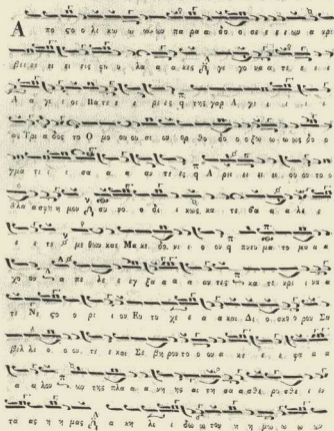 Α πο ςο ο λι κω ω ω ων πα ρα α δο ο σε ε ε ω ων α κρι
βιει ει ει ει εις φυ υ λα α α κες γε γο να α τε ε ε ε
Α α γι ε οι Πα τε ε ε ρι ες της γαρ Α γι ε ι ε
ας Τρι α δος το Ο μο ου ου σι ον ορ θο δο ο ο ξω ω ω ως δο ο
γμα τι ε ι σα α α αν τε ες Α ρι ει ει ει ει ου ου το ο
βλα α σφη η μον συ υ νο ο δι ε κως κα τε βα α α λε ε
ε ε τε με θων και Μα κε δο νι ε ο ον πνευ μα το μα α α
χο ον α πε λε ε γξα α α αν τες κα τε κρι ι να α
τε Νε ςο ο ρι ε ον Ευ τυ χε ε α α και Δι ο σκο ο ρον Σα
βελ λι ε ο ον τε ε και Σε βη ρον το ο ον α κε ε ε φα α
α α λον ων της πλα α α νη ης αι τη σα α ασθε ρυ σθε ε εν
τα ας η η μας α κη λι ε δω ω τον η η μω ω ω ων